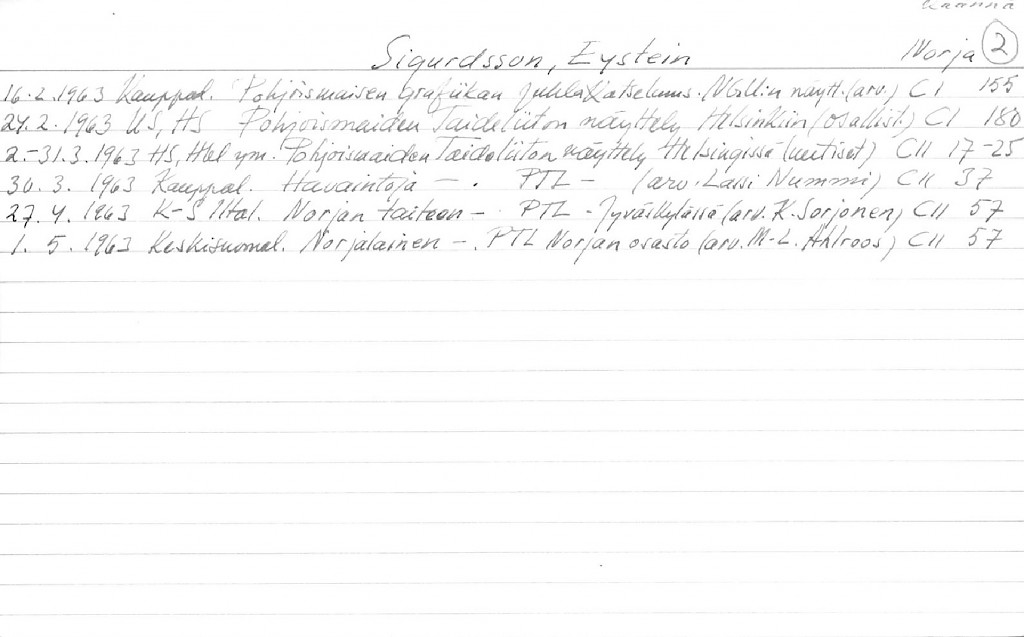 Käännä
Sigurdsson, Eystein Norja 2
16.2.1963 Kauppal. Pohjoismaisen Grafiikan juhlakatselmus. näytt. (arv.) CI 155
24.2.1963 US, HS Pohjoismaiden Taideliiton näyttely Helsinkiin (osallist.) CI 180
2.-31.3.1963 HS, Hbl ym. Pohjoismaiden Taideliiton näyttely Helsingissä (uutiset) CII 17-25
30.3.1963 Kauppal. Havaintoja - . PTL - (arv. Lassi Nummi) CII 37
27.4.1963 K-S Iltal. Norjan taiteen - . PTL - Jyväskylässä (arv. K. Sorjonen) CII 57
1.5.1963 Keskisuomal. Norjalainen - . PTL Norjan osasto (arv. M-L. Ahlroos) CII 57